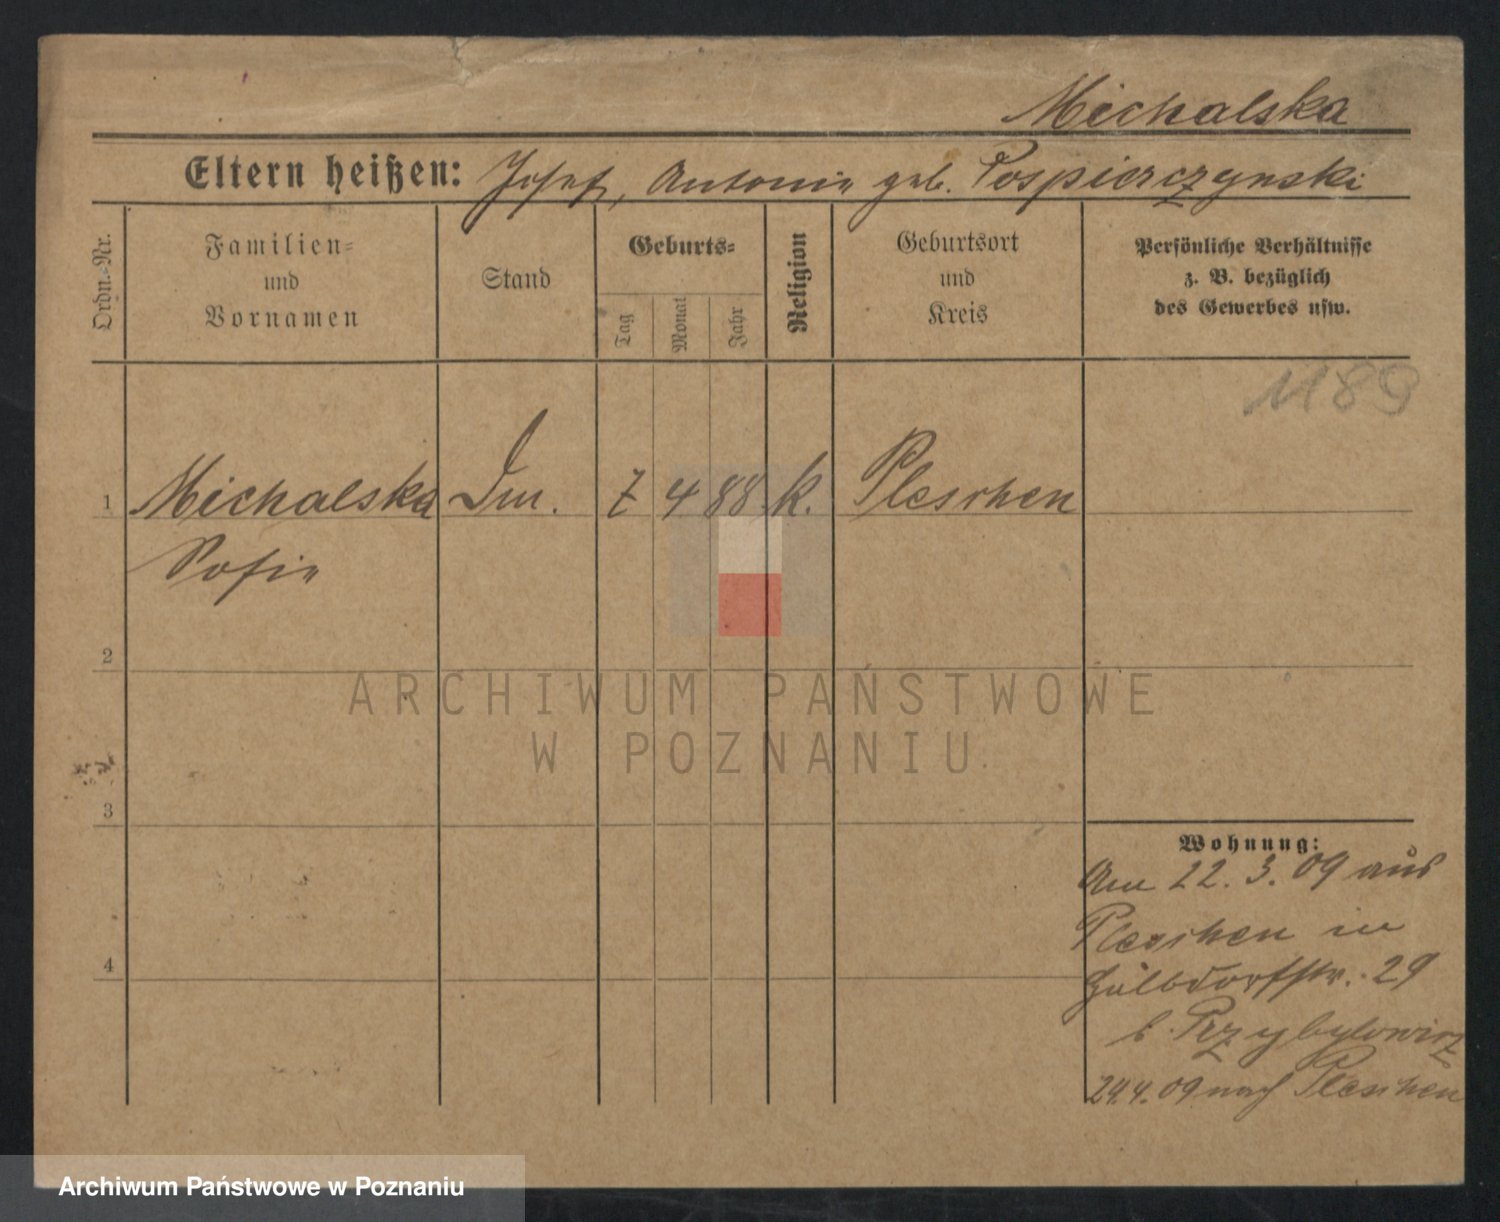 Michalska
Eltern heißen: Josef, Antonie geb. Pospierczynski
Ordn.-Nr.
Familien- und Vornamen
Stand
Geburts-
Tag
Monat
Jahr
Religion
Geburtsort und Kreis
Persönliche Verhältnisse
z. B. bezüglich
des Gewerbes usw.
1189
1 Michalska 7 4 88 k. Pleschen
Sofie
2
3
4
Wohnung:
Am 22. 3. 09 aus
Pleschen in
29
b. Przybylowicz
24.4. 09 nach Pleschen
ARCHIWUM PAŃSTWOWE
W POZNANIU
Archiwum Państwowe w Poznaniu